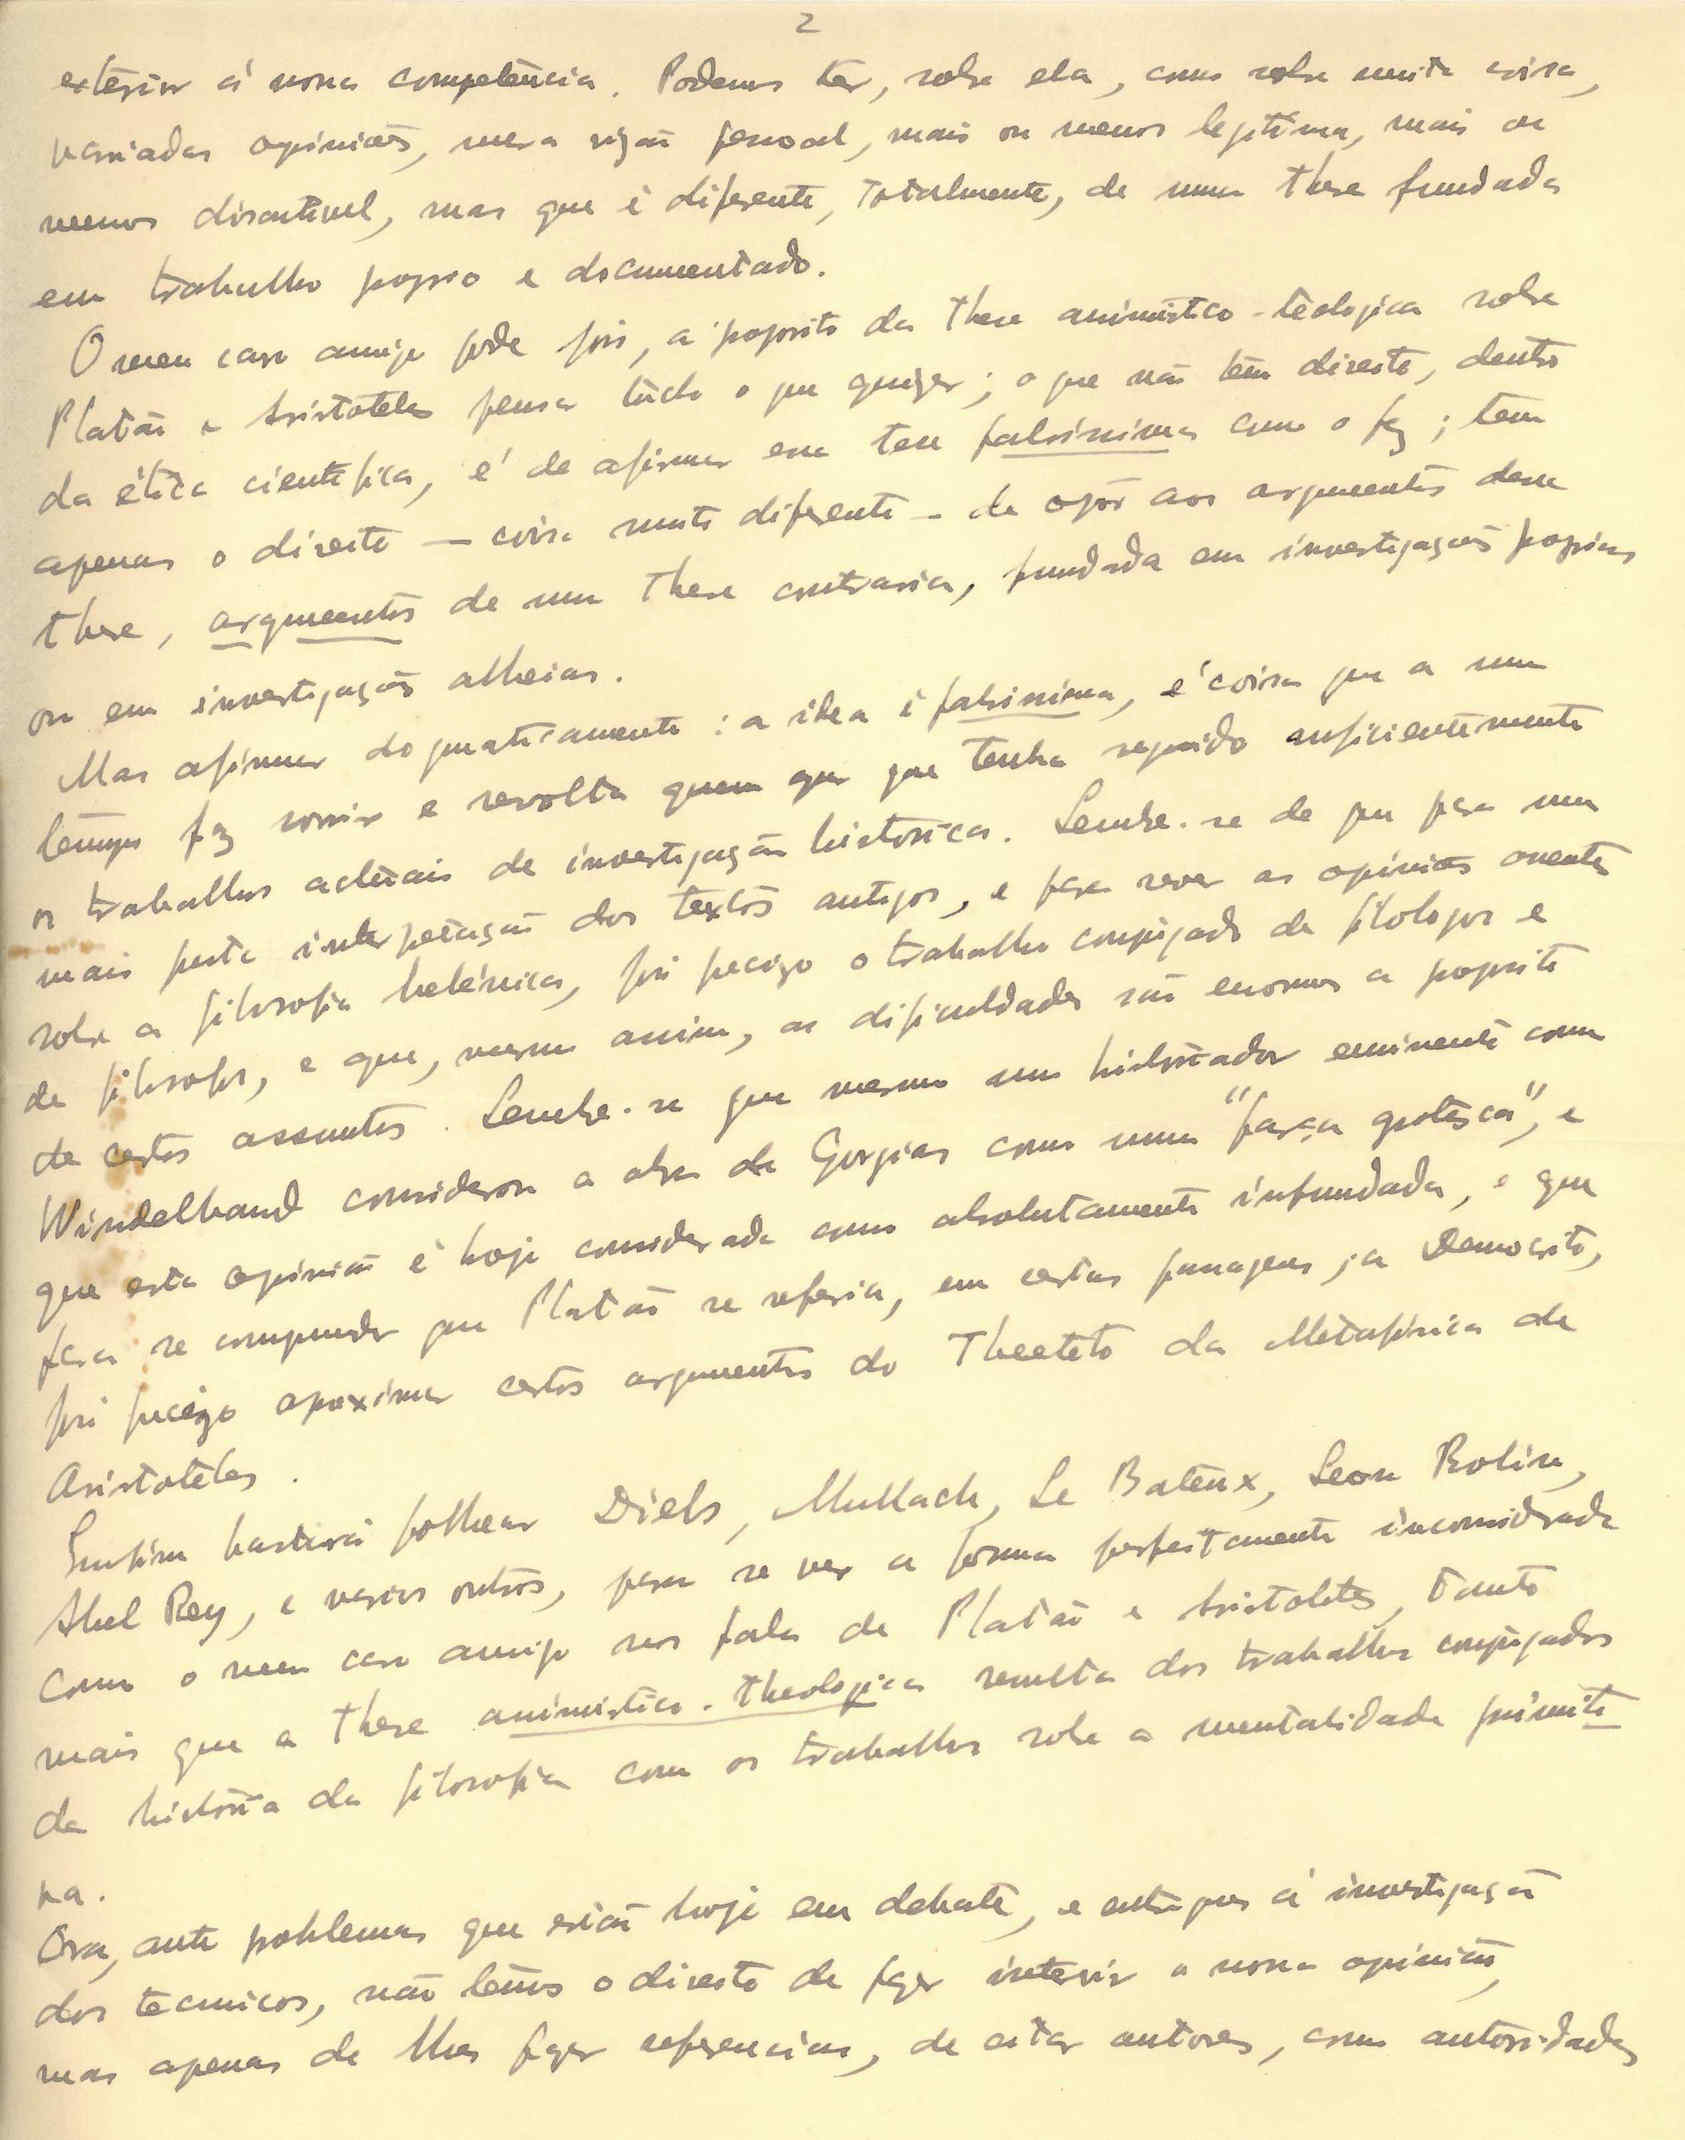 2
exterior á nossa competência. Podemos ter, sobre ela, como sobre muita coisa,
variadas opiniões, mera visão pessoal, mais ou menos legitima, mais ou
menos discutivel, mas que é diferente, totalmente, de uma these fundada
em trabalho proprio e documentado.
O meu caro amigo pode pois, a proposito da these animistico-teologica sobre
Platão e Aristoteles pensar tudo o que quizer; o que não têm direito, dentro
da ética cientifica, é de afirmar em tom falsissima como o fez; tem
apenas o direito — coisa muito diferente — de opôr aos argumentos dessa
these, argumentos de uma these contraria, fundada em investigações proprias
ou em investigações alheias.
Mas afirmar dogmaticamente: a idea é falsissima, é coisa que a um
tempo faz sorrir e revolta quem quer que tenha seguido suficientemente
os trabalhos actuais de investigação historica. Lembre-se de que para uma
mais justa interpretação dos textos antigos, e para rever as opiniões
sobre a filosofia helénica, foi precizo o trabalho conjugado de filologos e
de filosofos, e que, mesmo assim, as dificuldades são enormes a proposito
de certos assuntos. Lembre-se que mesmo um historiador eminente como
Windelband considerou a obra de Gorgias como uma "farça grotesca", e
que esta opinião é hoje considerada como absolutamente infundada, e que
para se compreender que Platão se referia, em certas passagens, a Democrito,
foi precizo aproximar certos argumentos do Theeteto da Metafisica de
Aristoteles.
Emfim bastará folhear Diels, Mullach, Le Bateux, Leon Robin,
Abel Rey, e varios outros, para se ver a forma perfeitamente inconsiderada
como o meu caro amigo nos fala de Platão e Aristoteles, tanto
mais que a these animistico-theologica resulta dos trabalhos conjugados
da história da filosofia com os trabalhos sobre a mentalidade primiti
va.
Ora, ante problemas que estão hoje em debate, e entregues á investigação
dos tecnicos, não temos o direito de fazer intervir a nossa opinião,
mas apenas de lhes fazer referencias, de citar autores, como autoridades